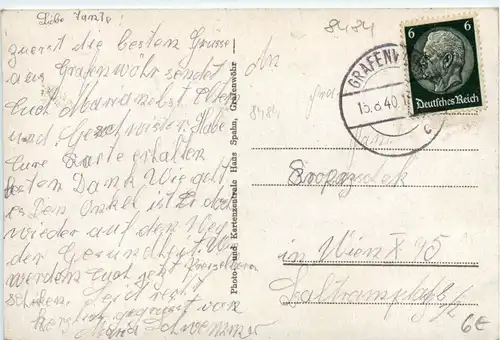 Liebe Tante
zuerst die besten Grüsse
aus Grafenwöhr sendet
Euch Maria nebst Eltern
und Geschwister. Habe
Eure Karte erhalten
besten Dank. Wie geht
es Dem Onkel ist Er doch
wieder auf dem Weg
der Gesundheit. Wir
werden Euch jetzt Preiselbeern
schicken. Seid recht
herzlich gegrüsst von
Maria Schwemmer
Photo- und Kartenzentrale Hans Spahn, Grafenwöhr
8484
8484
An
GRAFENW
15.8.40
c
6 6
Deutsches Reich
in Wien X 75
6€